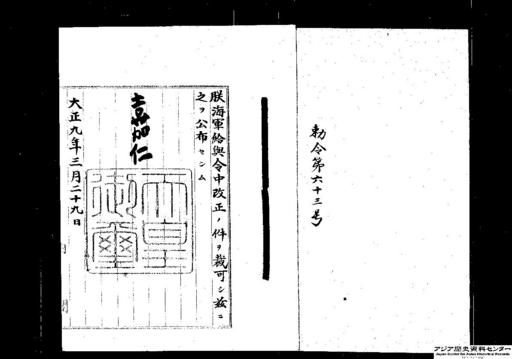 勅令第六十三号
朕海軍給與令中改正ノ件ヲ裁可シ茲ニ
之ヲ公布セシム
嘉仁
天皇
御璽
大正九年三月二十九日
アジア歴史資料センター
Japan Center for Asian Historical Records